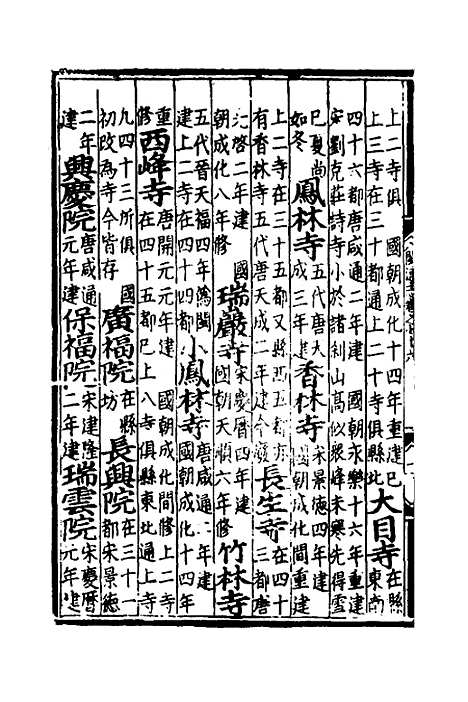 上二寺俱 國朝成化十四年重建已
上三寺在三十都通上二十寺俱縣北
大目寺
在縣
東南
四十六都唐咸通二年建 國朝永樂十六年重建
宋劉克莊詩寺小於諸刹山高似衆峰未寒先得雪
已夏尚
如冬
鳳林寺
五代唐天
成三年建
香林寺
宋景德四年建
國朝成化間重建
上二寺在三十五都又縣西五都亦
有香林寺五代唐天成二年建今廢
長生寺
在四十
三都唐
啓二年建 國
朝成化八年修
瑞巖寺
宋慶曆四年建
國朝天順六年修
竹林寺
五代晉天福四年僞閩
建上二寺在四十四都
小鳳林寺
唐咸通二年建
國朝成化十四年
重
修
西峰寺
唐開元元年建 國朝成化間修上二寺
在四十五都已上八寺俱縣東北通上寺
九四十三所俱 國
初改為寺今皆存
廣福院
在縣
坊
長興院
在三十一
都宋景德
二年
建
興慶院
唐咸通
元年建
保福院
宋建隆
二年建
瑞雲院
宋慶曆
元年建